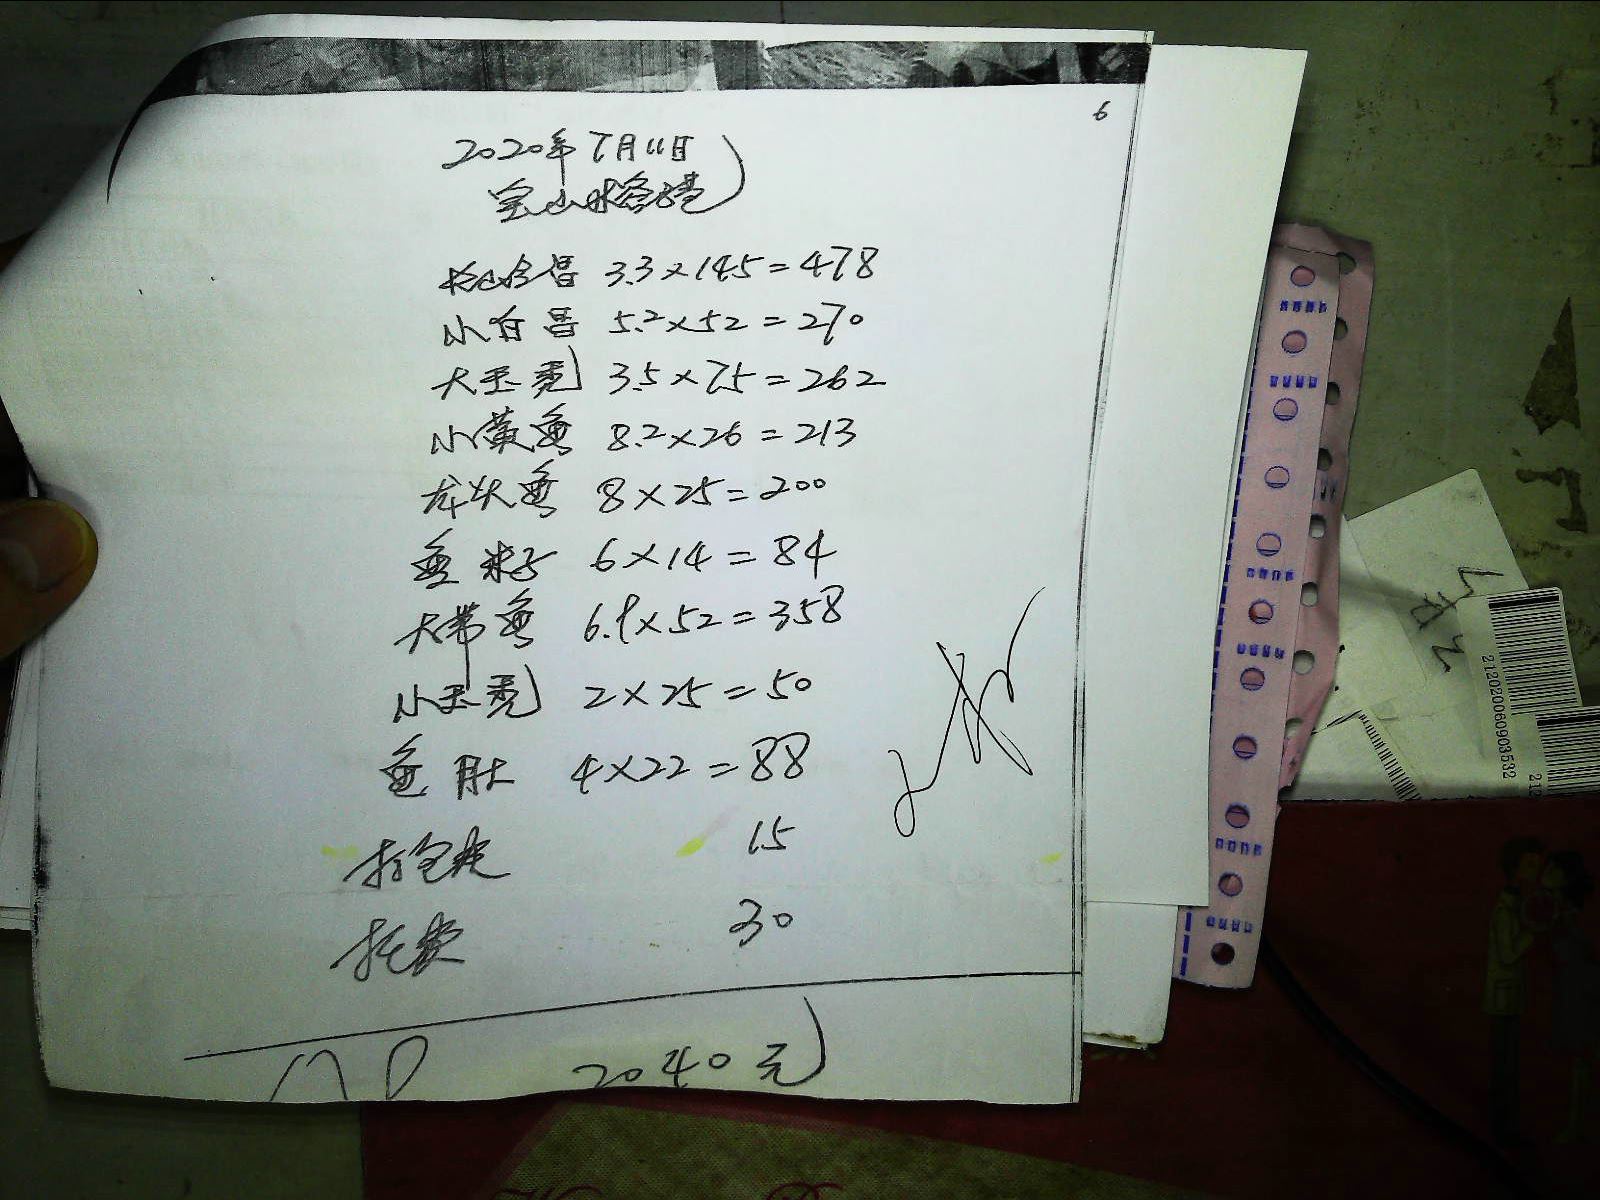 6
2020年7月11日
宝山水
昌 3.3×145=478
小白昌 5.2×52=270
大玉秃 3.5×75=262
小黄鱼 8.2×26=213
龙头鱼 8×25=200
鱼籽 6×14=84
大带鱼 6.9×52=358
小玉秃 2×25=50
鱼肚 4×22=88
打包费 15
托费 30
2040元
212020060903532
212